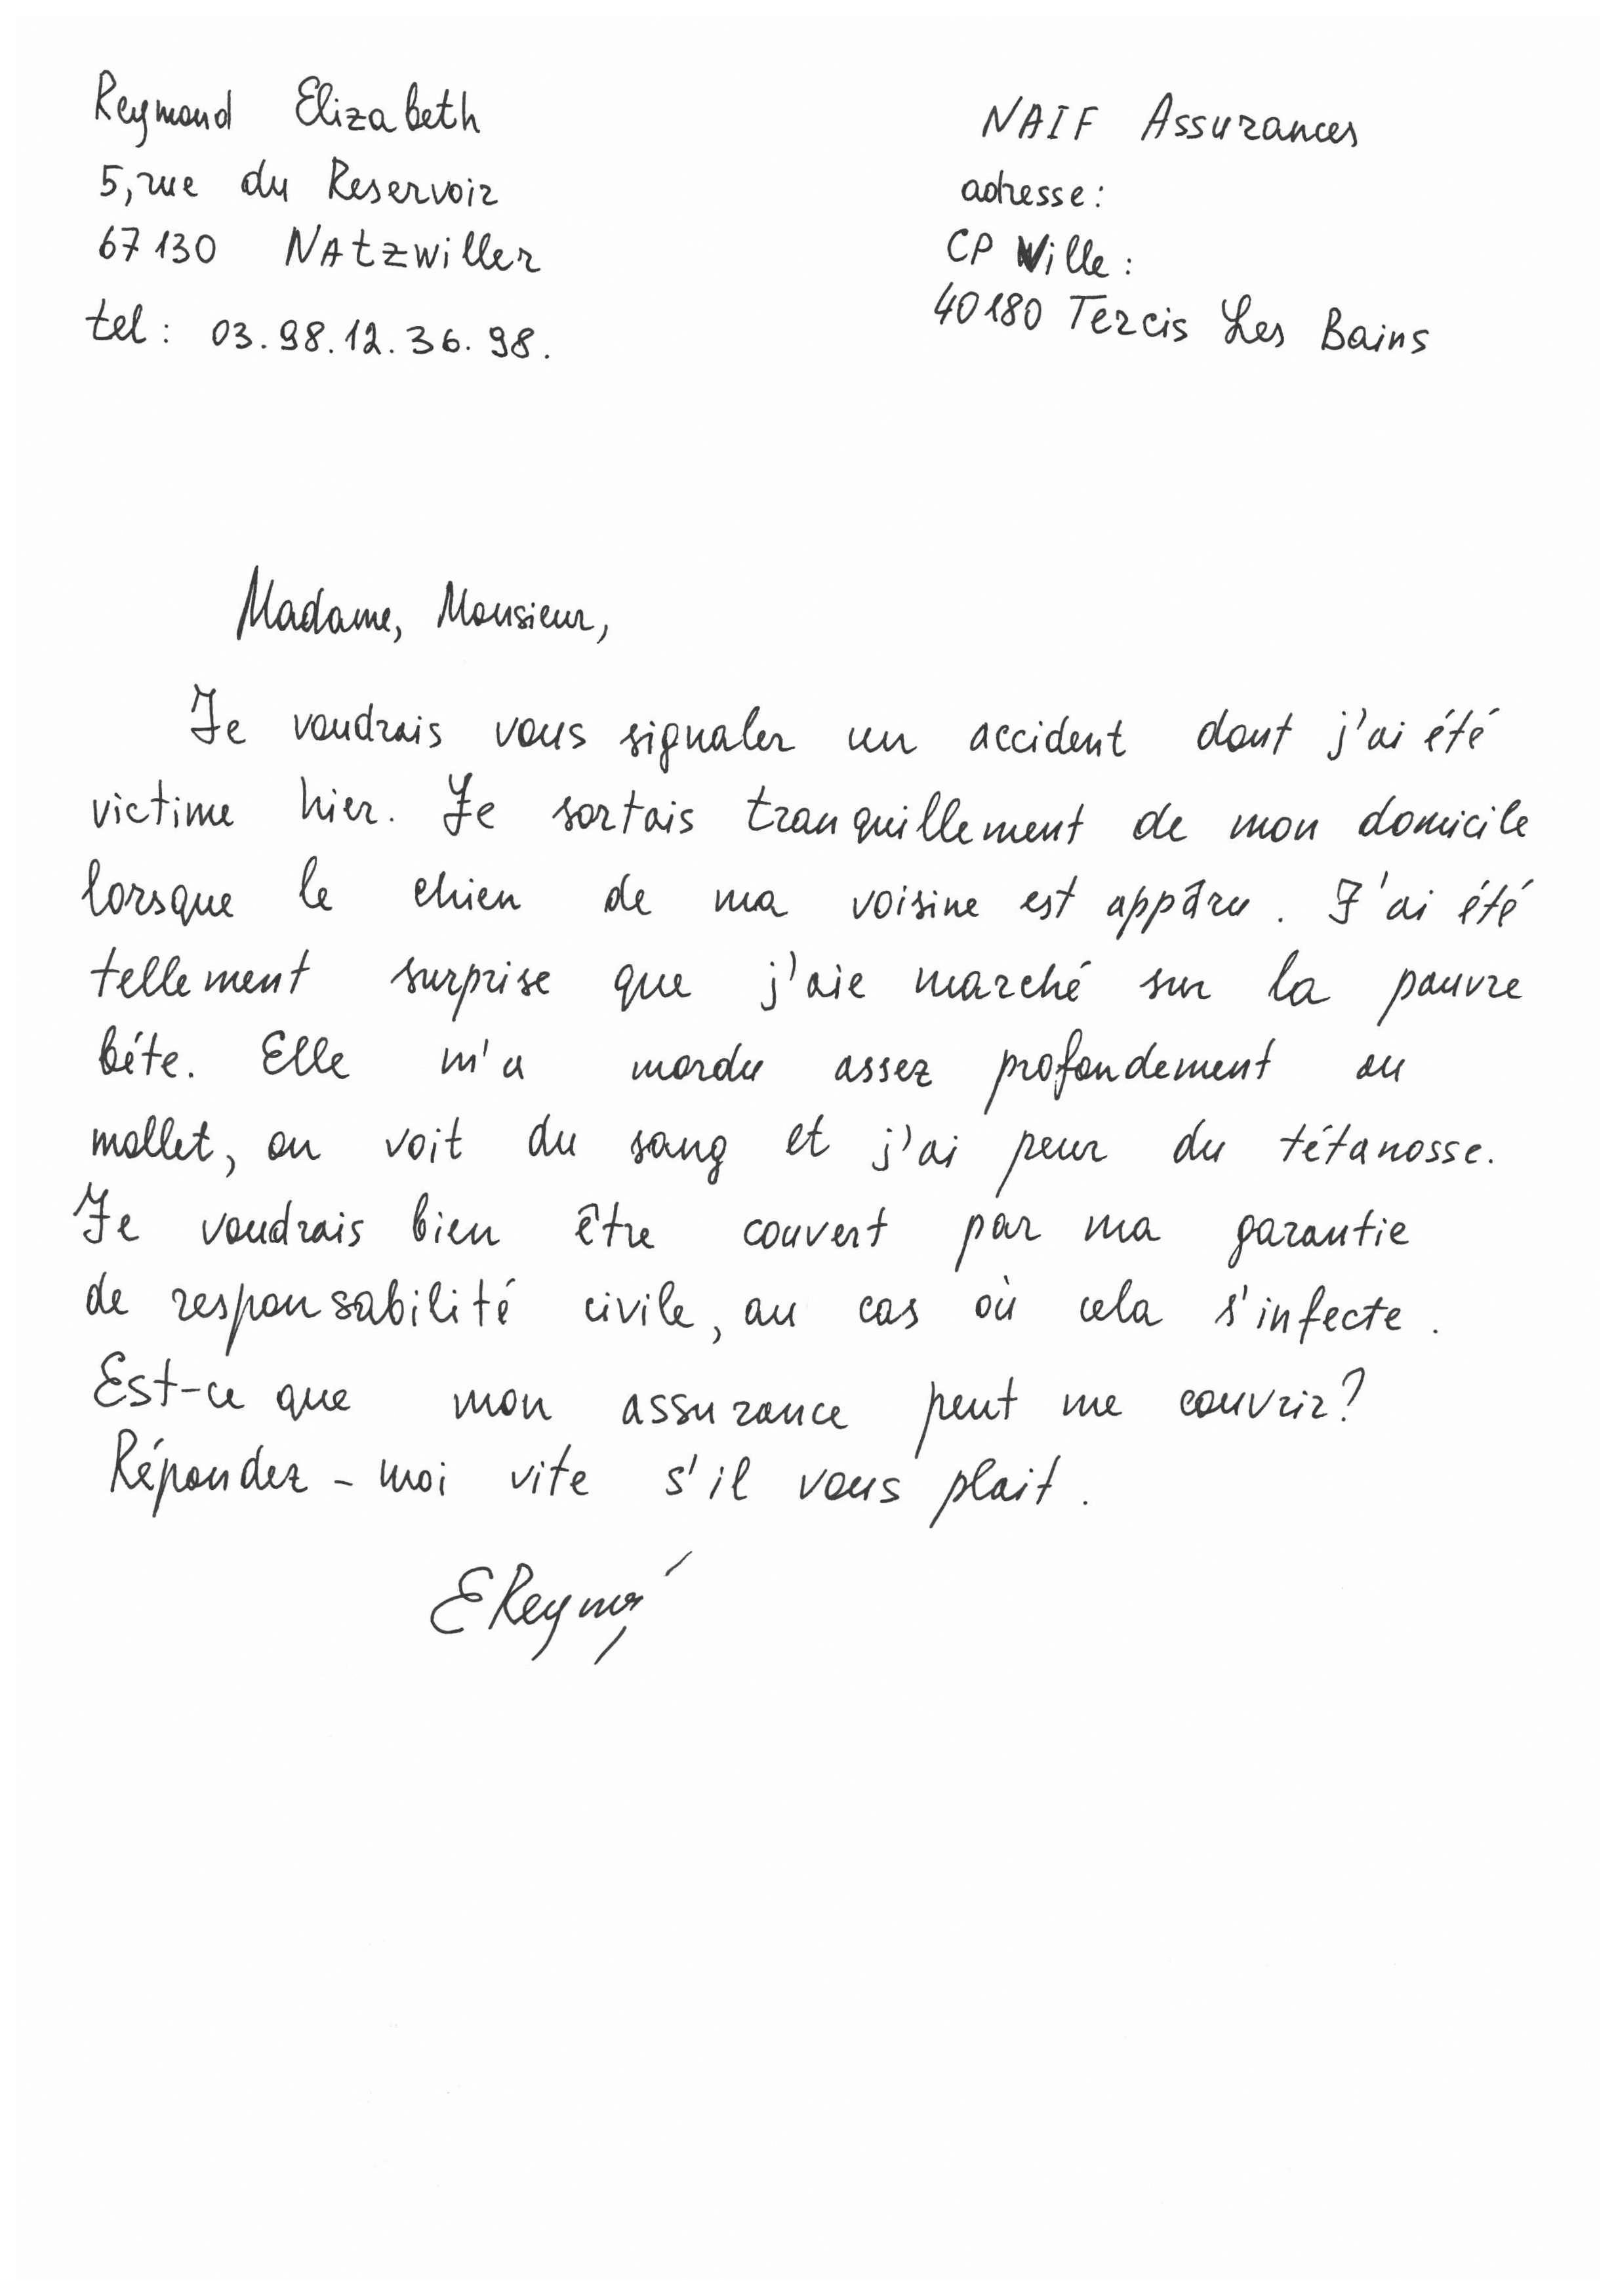 Reymond Elizabeth
5, rue du Reservoir
67130 NAtzwiller
tel : 03.98.12.36.98.
NAIF Assurances
adresse :
CP Ville :
40180 Tercis Les Bains
Madame, Monsieur,
Je voudrais vous signaler un accident dont j'ai été
victime hier. Je sortais tranquillement de mon domicile
lorsque le chien de ma voisine est appâru. J'ai été
tellement surprise que j'aie marché sur la pauvre
béte. Elle m'a mordu assez profondement au
mollet, on voit du sang et j'ai peur du tétanosse.
Je voudrais bien être couvert par ma garantie
de responsabilité civile, au cas où cela s'infecte.
Est-ce que mon assurance peut me couvrir?
Répondez-moi vite s'il vous plait.